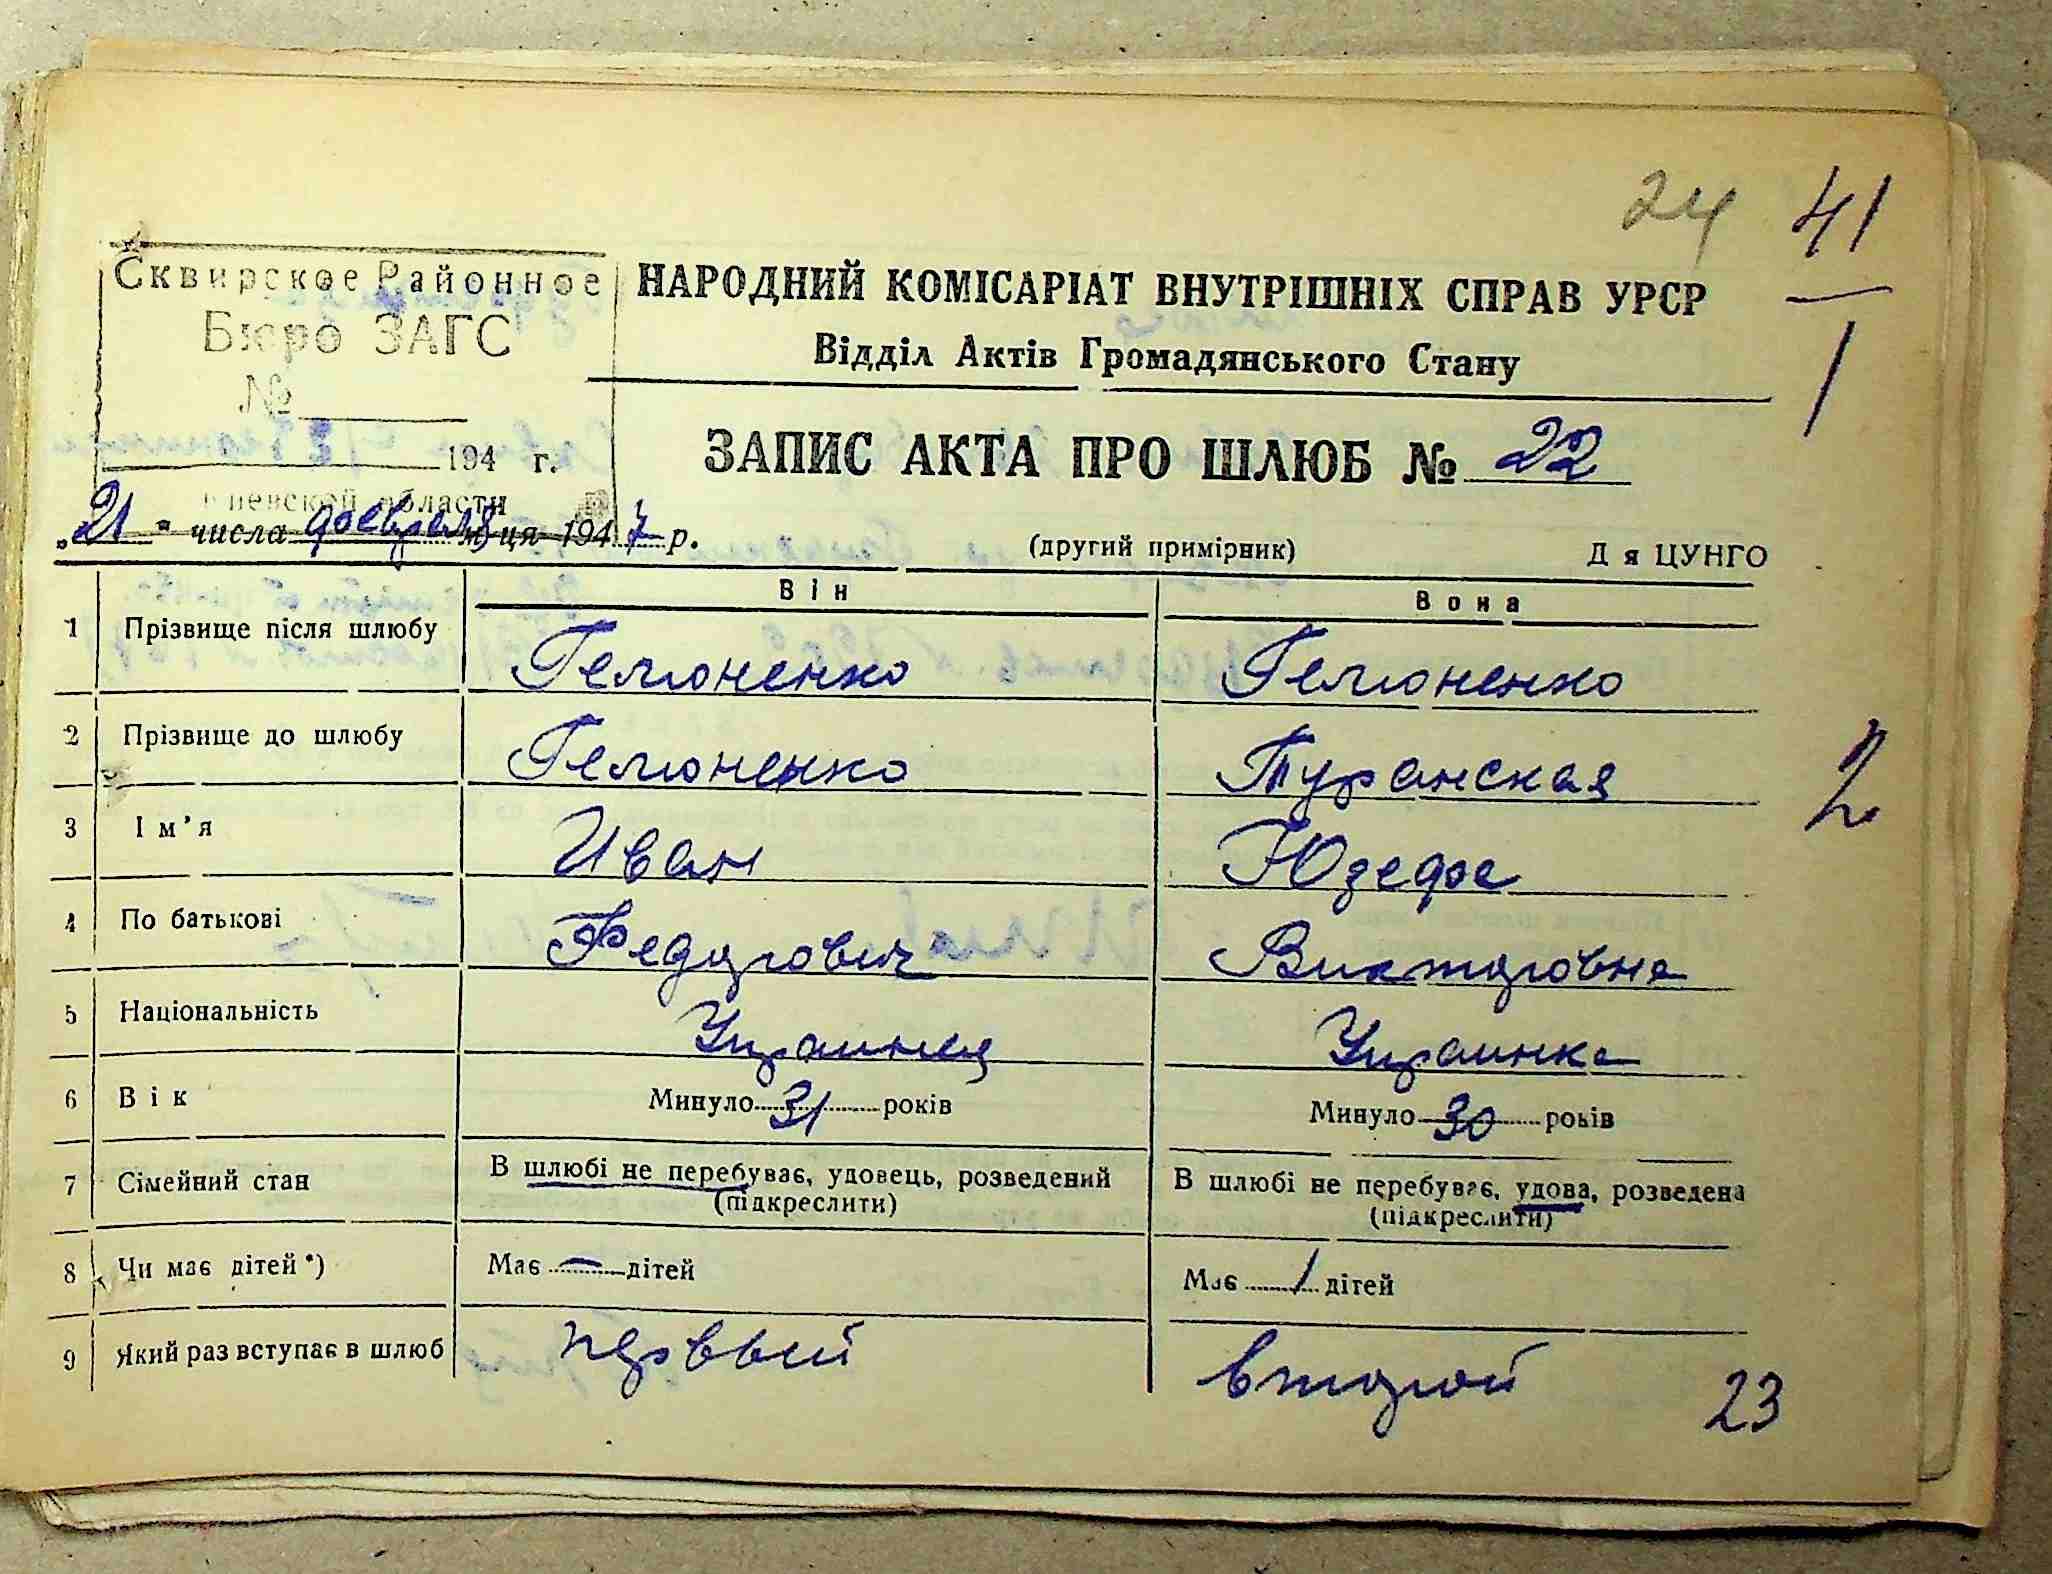 24 41
1
Сквирское Районное
Бюро ЗАГС
№
194 г.
Киевской области
НАРОДНИЙ КОМІСАРІАТ ВНУТРІШНІХ СПРАВ УРСР
Відділ Актів Громадянського Стану
ЗАПИС АКТА ПРО ШЛЮБ № 22
„21" числа февраля м-ця 1947 р.
(другий примірник)
Д я ЦУНГО
Він Вона
1 Прізвище після шлюбу Гемоненко Гемоненко
2 Прізвище до шлюбу Гемоненко Туранская
2
3 Ім'я Иван Юзефа
4 По батькові Федорович Викторовна
5 Національність Украинец Украинка
6 Вік Минуло 31 років Минуло 30 років
7 Сімейний стан В шлюбі не перебуває, удовець, розведений В шлюбі не перебуває, удова, розведена
(підкреслити) (підкреслити)
8 Чи має дітей*) Має — дітей Має 1 дітей
9 Який раз вступає в шлюб первый второй
23